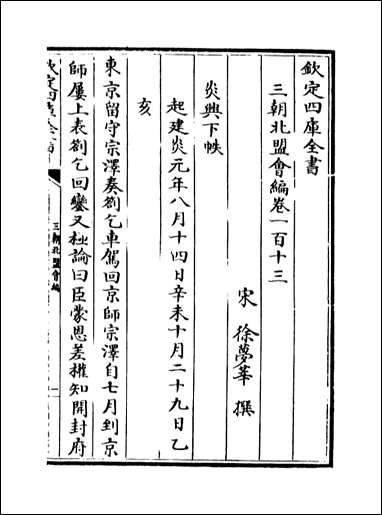 欽定四庫全書
三朝北盟會編卷一百十三
宋 徐夢莘 撰
炎興下帙
起建炎元年八月十四日辛未十月二十九日乙
亥
東京留守宗澤奏劄乞車駕回京師宗澤自七月到京
師屢上表劄乞回鑾又極論曰臣蒙恩差權知開封府
欽定四庫全書
三朝北盟會編
一